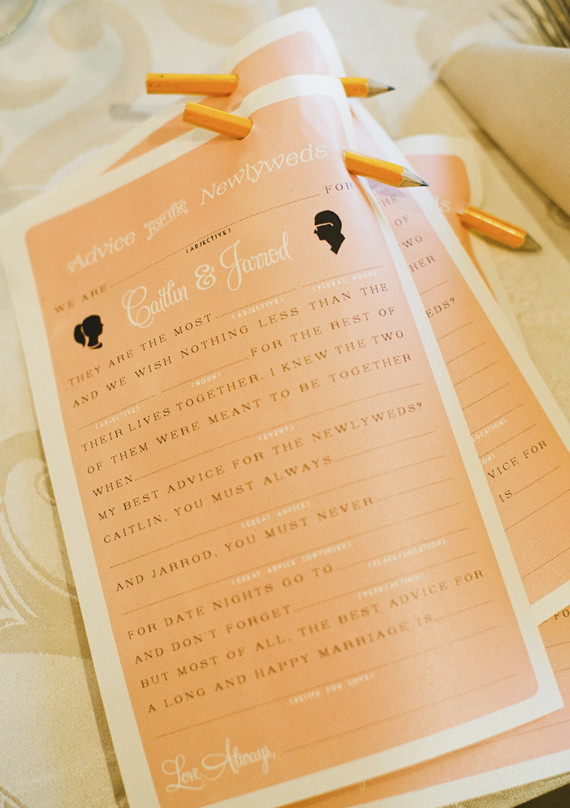 Advice for the Newlyweds
WE ARE FOR
(ADJECTIVE)
Caitlin & Jarrod
THEY ARE THE MOST
(ADJECTIVE) (PLURAL NOUN)
AND WE WISH NOTHING LESS THAN THE
FOR THE REST OF
(ADJECTIVE) (NOUN)
THEIR LIVES TOGETHER. I KNEW THE TWO
OF THEM WERE MEANT TO BE TOGETHER
WHEN
(EVENT)
MY BEST ADVICE FOR THE NEWLYWEDS?
CAITLIN, YOU MUST ALWAYS
(GREAT ADVICE)
AND JARROD, YOU MUST NEVER
(GREAT ADVICE CONTINUED)
FOR DATE NIGHTS GO TO
(PLACE/VOCATION)
AND DON'T FORGET
(VERB/ACTION)
BUT MOST OF ALL, THE BEST ADVICE FOR
A LONG AND HAPPY MARRIAGE IS
(RECIPE FOR LOVE)
Love Always,
THE
OF
WO
HER
EDS?
VICE FOR
IS
FOR